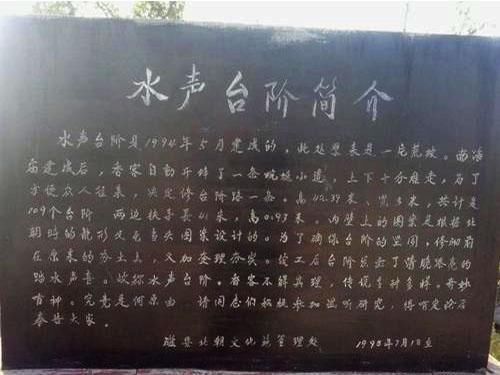 水声台阶简介
水声台阶是1994年5月建成的，此处原来是一片荒坡。南海
庙建成后，香客自动开辟了一条蜿蜒小道，上下十分难走，为了
方便众人往来，决定修台阶路一条。高 米、宽 米，共计是
109个台阶 两边扶手长41米，高0.93米，内壁上的图案是根据北
朝时的龙形又龟兽头图案设计的。为了确保台阶的坚固，修砌前
在原来的夯土上，又加整理夯实。竣工后台阶发出了清脆嘹亮的
踏水声音。故称水声台阶。香客不解真理，传说多种多样。奇妙
有神。究竟是何原由 请同志们积极参加监听研究，得有定论后
奉告大家。
磁县北朝文化苑管理处 1995年7月18立